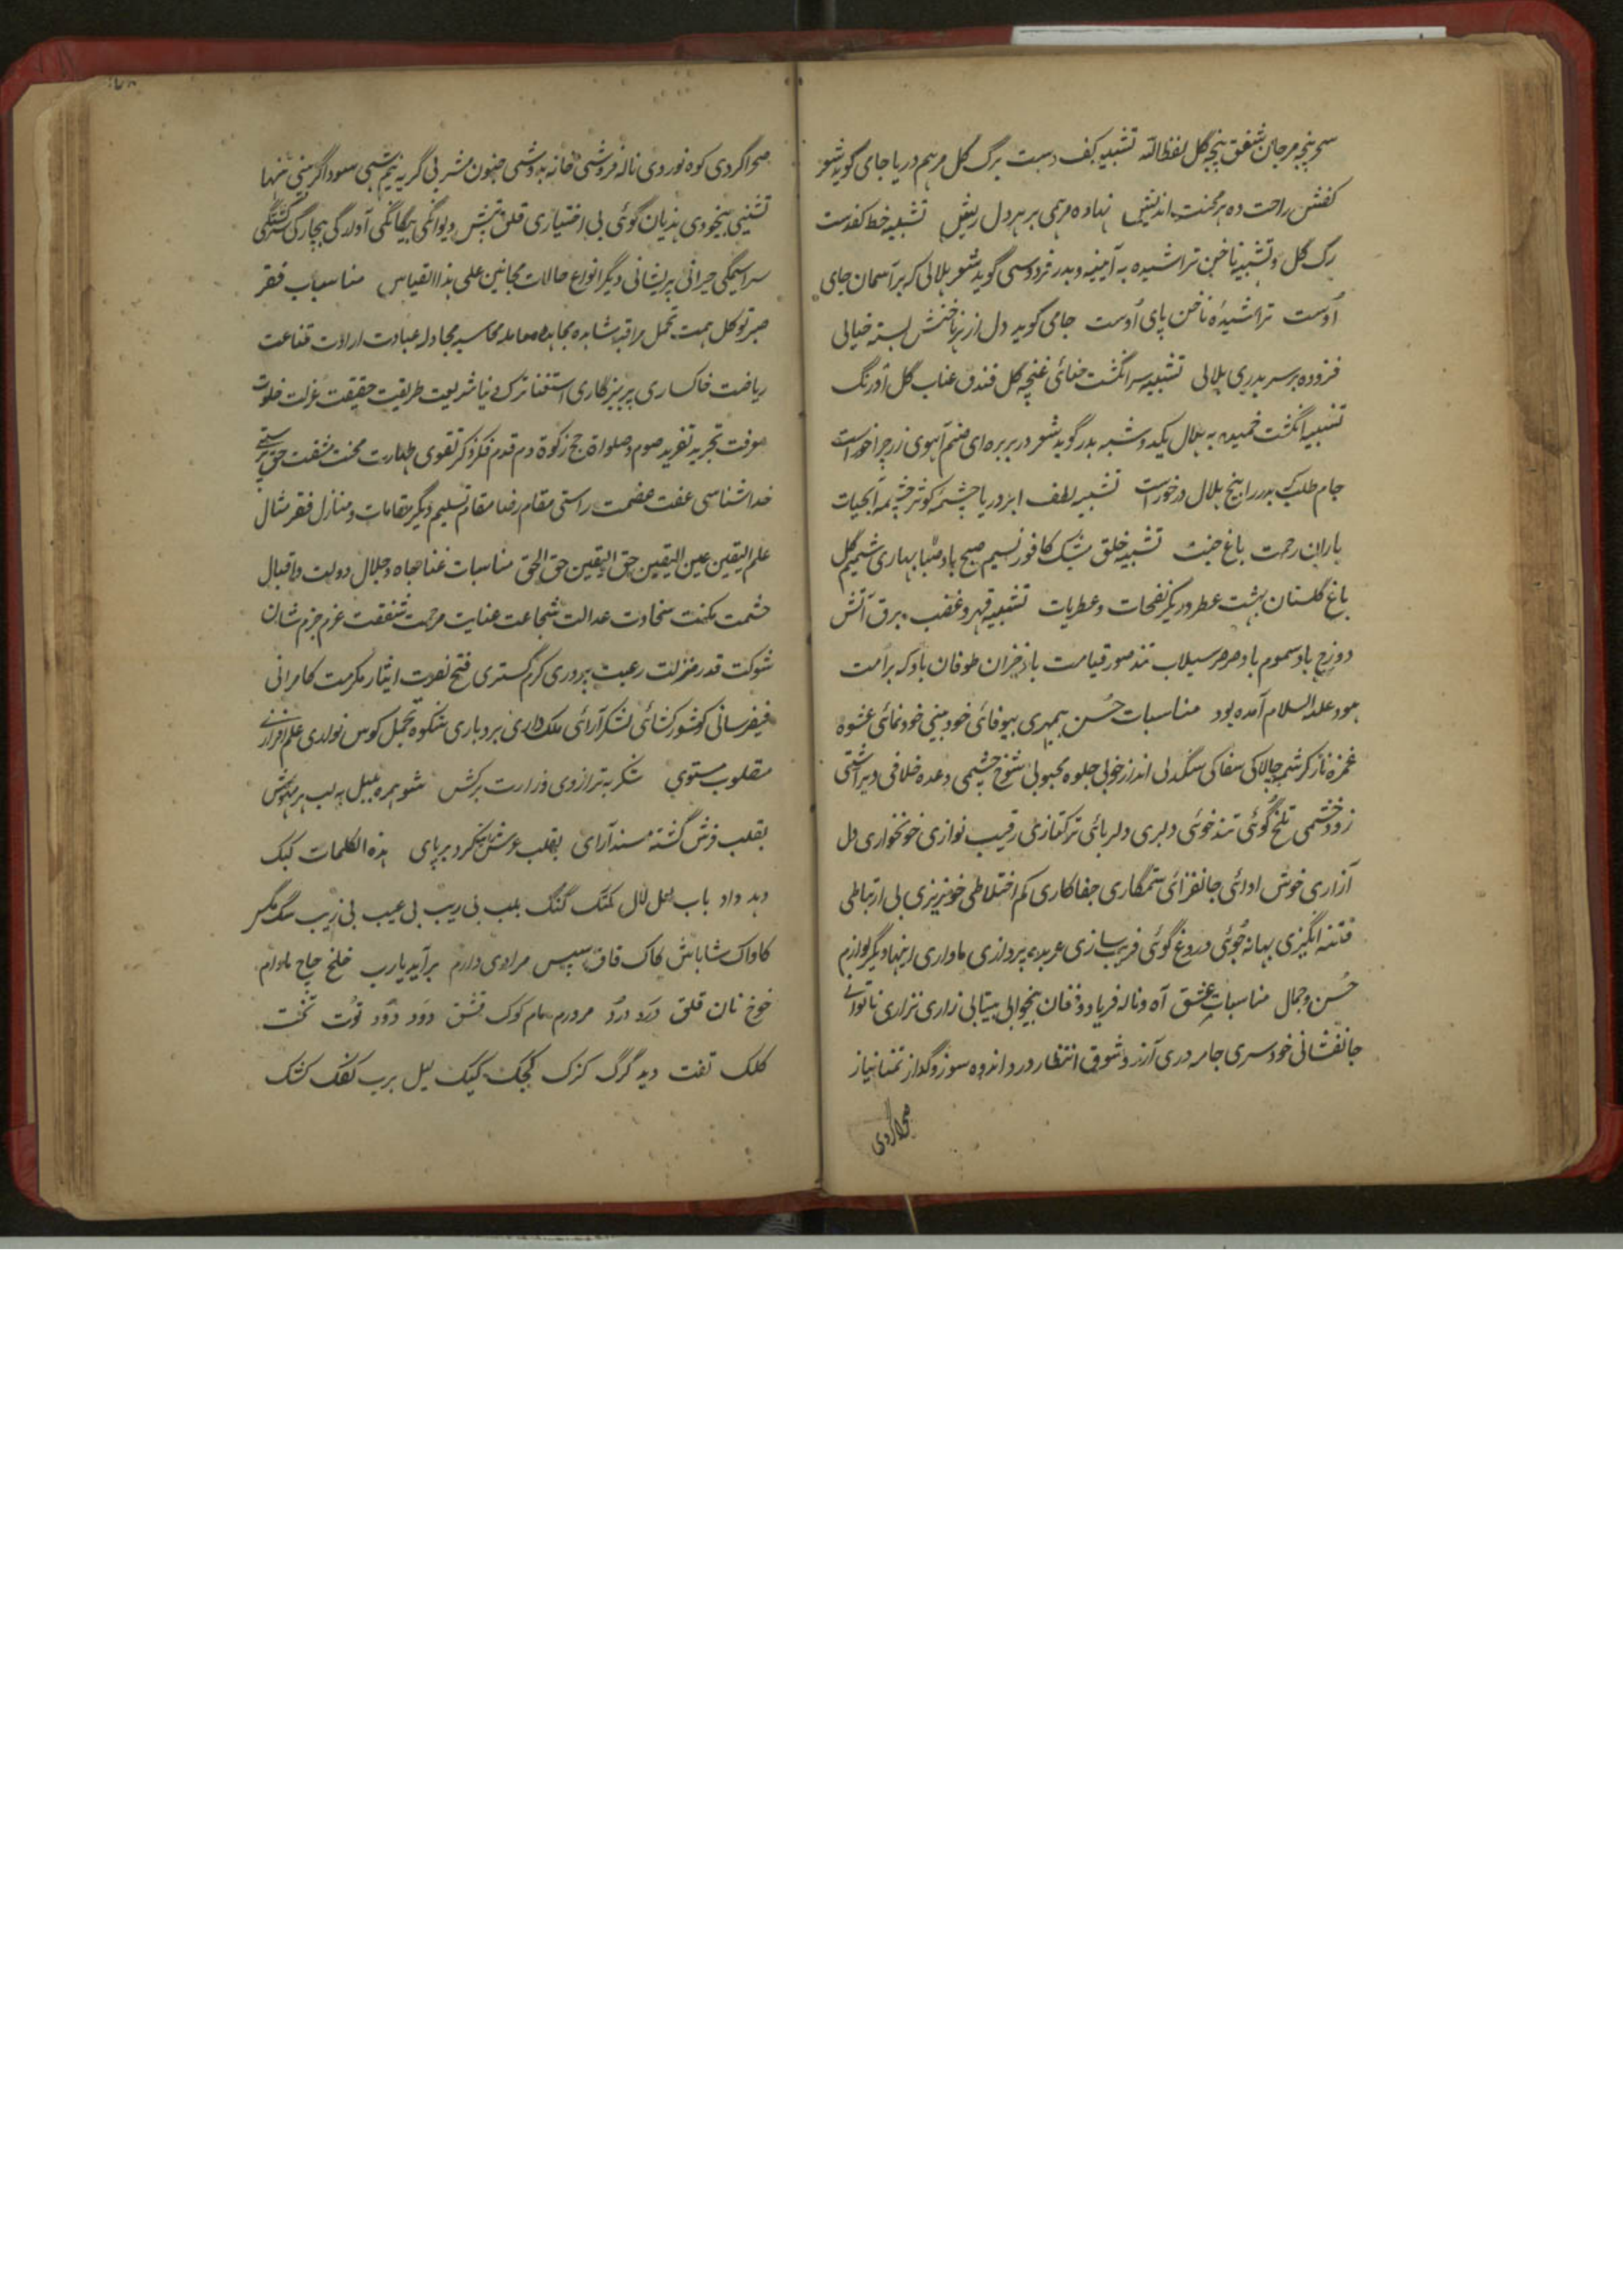 سحر پنجه مرجان شفق پنجه گل لفظ الله تشبیه کف دست برگ گل مرهم دریا جامی گوید شعر
کفش راحت ده هر محنت اندیش نهاده مرهمی بر هر دل ریش تشبیه خط کف دست
رگ گل و تشبیه ناخن تراشیده به آیینه و بدر فردوسی گوید شعر هلالی که بر آسمان جای
اوست تراشیده ناخن پای اوست جامی گوید دل از هر ناخنش بسته خیالی
فزوده بر سر بدری هلالی تشبیه سر انگشت حنائی غنچه گل فندق عناب گل اورنگ
تشبیه انگشت خمیده به هلال یکدو شبه بدر گوید شعر در بربره ای صنم آهوی زر چرا خوراست
جام طلبت بدر را پنج هلال درخوراست تشبیه لطف ابر دریا چشمه کوثر چشمه آبحیات
باران رحمت باغ جنت تشبیه خلق مشک کافور نسیم صبح باد صبا بهاری شمیم گل
باغ گلستان بهشت عطر و دیگر نفحات و عطریات تشبیه قهر و غضب برق آتش
دوزخ باد سموم باد صرصر سیلاب تند صور قیامت باد خزان طوفان باد که بر امت
هود علیه السلام آمده بود مناسبات حسن بیمهری بیوفائی خودبینی خودنمائی عشوه
غمزه ناز کرشمه چالاکی سفاکی سنگدلی انداز خوبی جلوه محبوبی شوخ چشمی وعده خلافی دیرآشتی
زود خشمی تلخ گوئی تندخوئی دلبری دلربائی ترکتازی رقیب نوازی خونخواری دل
آزاری خوش ادائی جانفزائی ستمگاری جفاکاری کم اختلاطی خونریزی بی ارتباطی
فتنه انگیزی بهانه جوئی دروغ گوئی فریب سازی عربده پردازی اینها و دیگر لوازم
حسن و جمال مناسبات عشق آه و ناله فریاد و فغان بیخوابی بیتابی زاری نزاری ناتوانی
جانفشانی خودسری جامه دری آرزو شوق انتظار درد اندوه سوز و گداز تمنا نیاز
صحراگردی
صحراگردی کوه نوردی ناله فروشی خانه بدوشی جنون مشربی گریه نیم شبی سوداگزینی تنها
نشینی بیخودی هذیان گوئی بی اختیاری قلق تپش دیوانگی بیگانگی آوارگی بیچارگی گشتگی
سراسیمگی حیرانی پریشانی دیگر انواع حالات مجانین علی هذا القیاس مناسبات فقر
صبر توکل همت تحمل مراقبه مشاهده مجاهده معامله محاسبه مجادله عبادت ارادت قناعت
ریاضت خاکساری پرهیزگاری استغنا ترک دنیا شریعت طریقت حقیقت عزلت خلوت
معرفت تجرید تفرید صوم و صلواة حج زکوة دم قدم فکر ذکر تقوی طهارت محنت مشقت حق پرستی
خداشناسی عفت عصمت راستی مقام رضا مقام تسلیم دیگر مقامات و منازل فقر مثال
علم الیقین عین الیقین حق الیقین حق الحق مناسبات غنا جاه و جلال دولت و اقبال
حشمت مکنت سخاوت عدالت شجاعت عنایت مرحمت شفقت عزم حزم شان
شوکت قدر منزلت رعیت پروری کرم گستری فتح نصرت ایثار مکرمت کامرانی
فیض رسانی کشورکشائی لشکرآرائی ملک داری بردباری شکوه تجمل کوس علم افرازی
مقلوب مستوی شکر بترازوی وزارت برکش شو همره بلبل بلب هر مهوش
بقلب فرش گشته مسند آرای بقلب عرش بر پای هذه الکلمات کبک
دید داد باب لعل لال کمک گنگ بلب بی ریب بی عیب بی زیب سگ مگس
کاواک شاباش کاک قاق سپس مرادی دارم برآید یارب خلخ چاچ مادام
خوخ نان قلق درد دُرد مرورم مام کوک دَود دُود تُوت تخت
کلک تفت دید گرگ کزک کجک کیک لیل برب کفک کشک